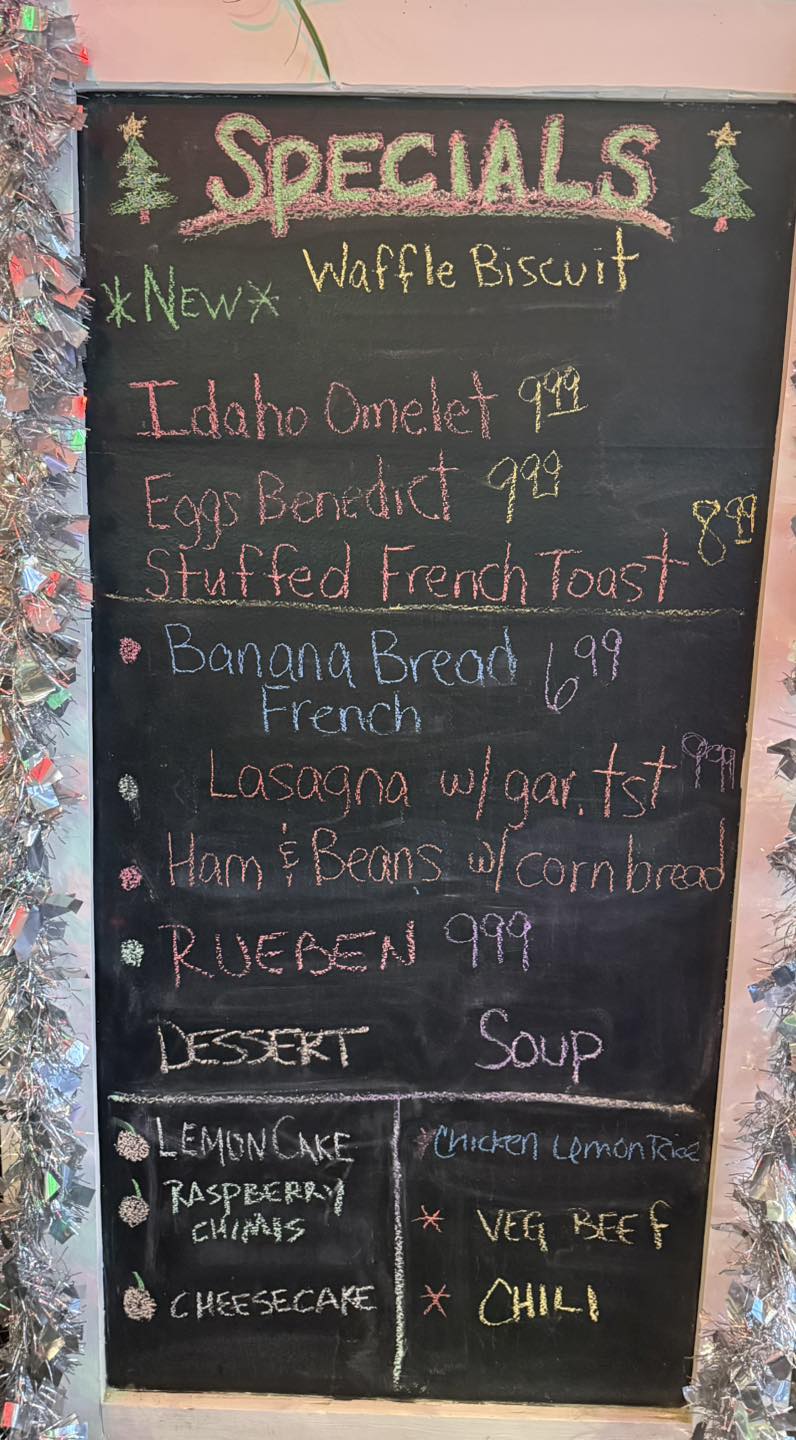 SPECIALS
Waffle Biscuit
*NEW*
Idaho Omelet 9.99
Eggs Benedict 9.99
Stuffed French Toast 8.99
Banana Bread 6.99
French
Lasagna w/gar. tst 9.99
Ham & Beans w/cornbread
RUEBEN 9.99
DESSERT SOUP
LEMON CAKE
RASPBERRY
CHIMIS
CHEESECAKE
Chicken Lemon Rice
* VEG BEEF
* CHILI